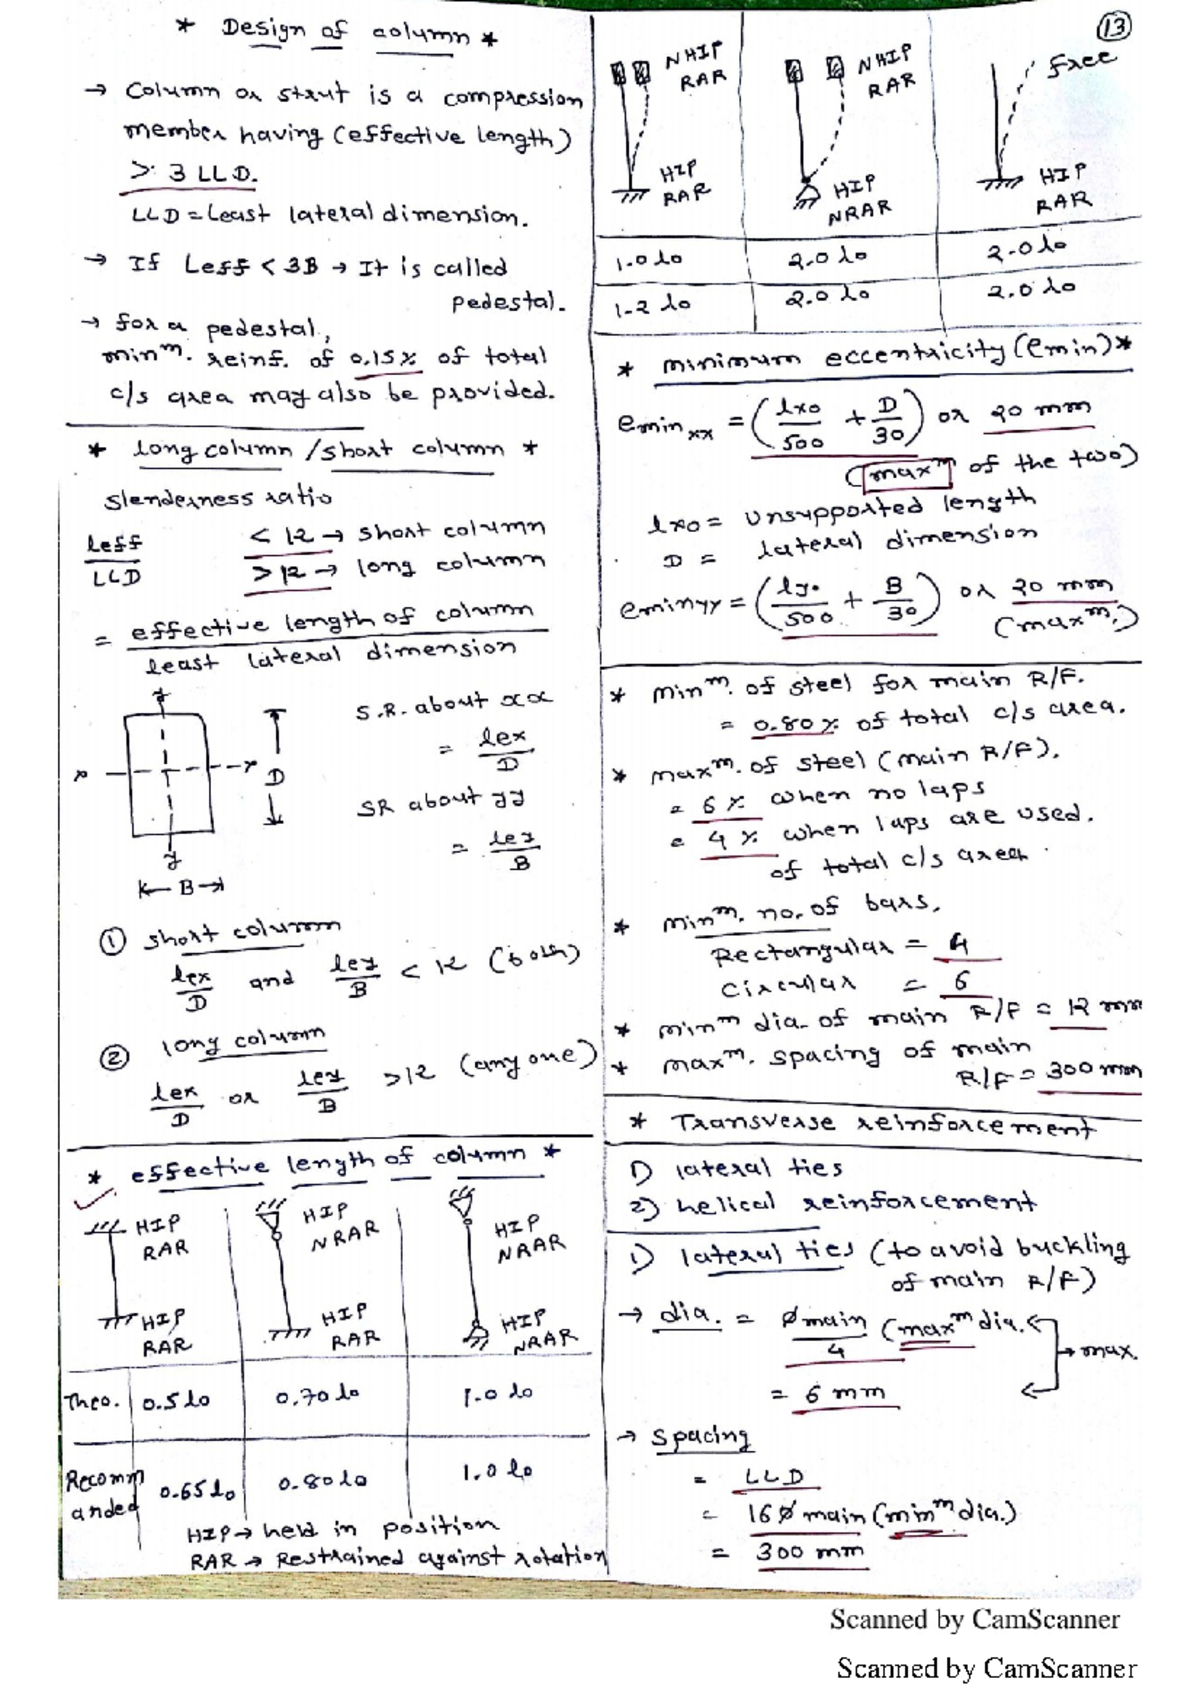 * Design of column *
→ Column or strut is a compression
member having (effective length)
> 3 LLD.
LLD = Least lateral dimension.
→ If Leff < 3B → It is called
pedestal.
→ for a pedestal,
minm. reinf. of 0.15% of total
c/s area may also be provided.
* long column / short column *
slenderness ratio
Leff/LLD < 12 → short column
> 12 → long column
= effective length of column / least lateral dimension
y
x x D
y
B
S.R. about xx
= lex/D
SR about yy
= ley/B
① short column
lex/D and ley/B < 12 (both)
② long column
lex/D or ley/B > 12 (any one)
* effective length of column *
HIP RAR
HIP NRAR
HIP NRAR
HIP RAR
HIP RAR
HIP NRAR
Theo. 0.5 lo 0.70 lo 1.0 lo
Recomm
anded 0.65 lo 0.80 lo 1.0 lo
HIP → held in position
RAR → Restrained against rotation
13
NHIP RAR
NHIP RAR
free
HIP RAR
HIP NRAR
HIP RAR
1.0 lo 2.0 lo 2.0 lo
1.2 lo 2.0 lo 2.0 lo
* minimum eccentricity (emin) *
eminxx = (lxo/500 + D/30) or 20 mm
(maxm of the two)
lxo = unsupported length
D = lateral dimension
eminyy = (lyo/500 + B/30) or 20 mm
(maxm.)
* minm. of steel for main R/F.
= 0.80% of total c/s area.
* maxm. of steel (main R/F).
= 6% when no laps
= 4% when laps are used.
of total c/s area.
* minm. no. of bars.
Rectangular = 4
Circular = 6
* minm dia. of main R/F = 12 mm
* maxm. spacing of main
R/F = 300 mm
* Transverse reinforcement
1) lateral ties
2) helical reinforcement
1) lateral ties (to avoid buckling
of main R/F)
→ dia. = Ømain/4 (maxm dia.)
→ max.
= 6 mm
→ spacing
= LLD
= 16 Ø main (minm dia.)
= 300 mm
Scanned by CamScanner
Scanned by CamScanner